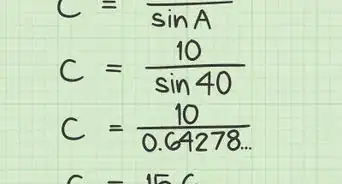 C = sin A
C = 10 / sin 40
C = 10 / 0.64278...
C = 15.6